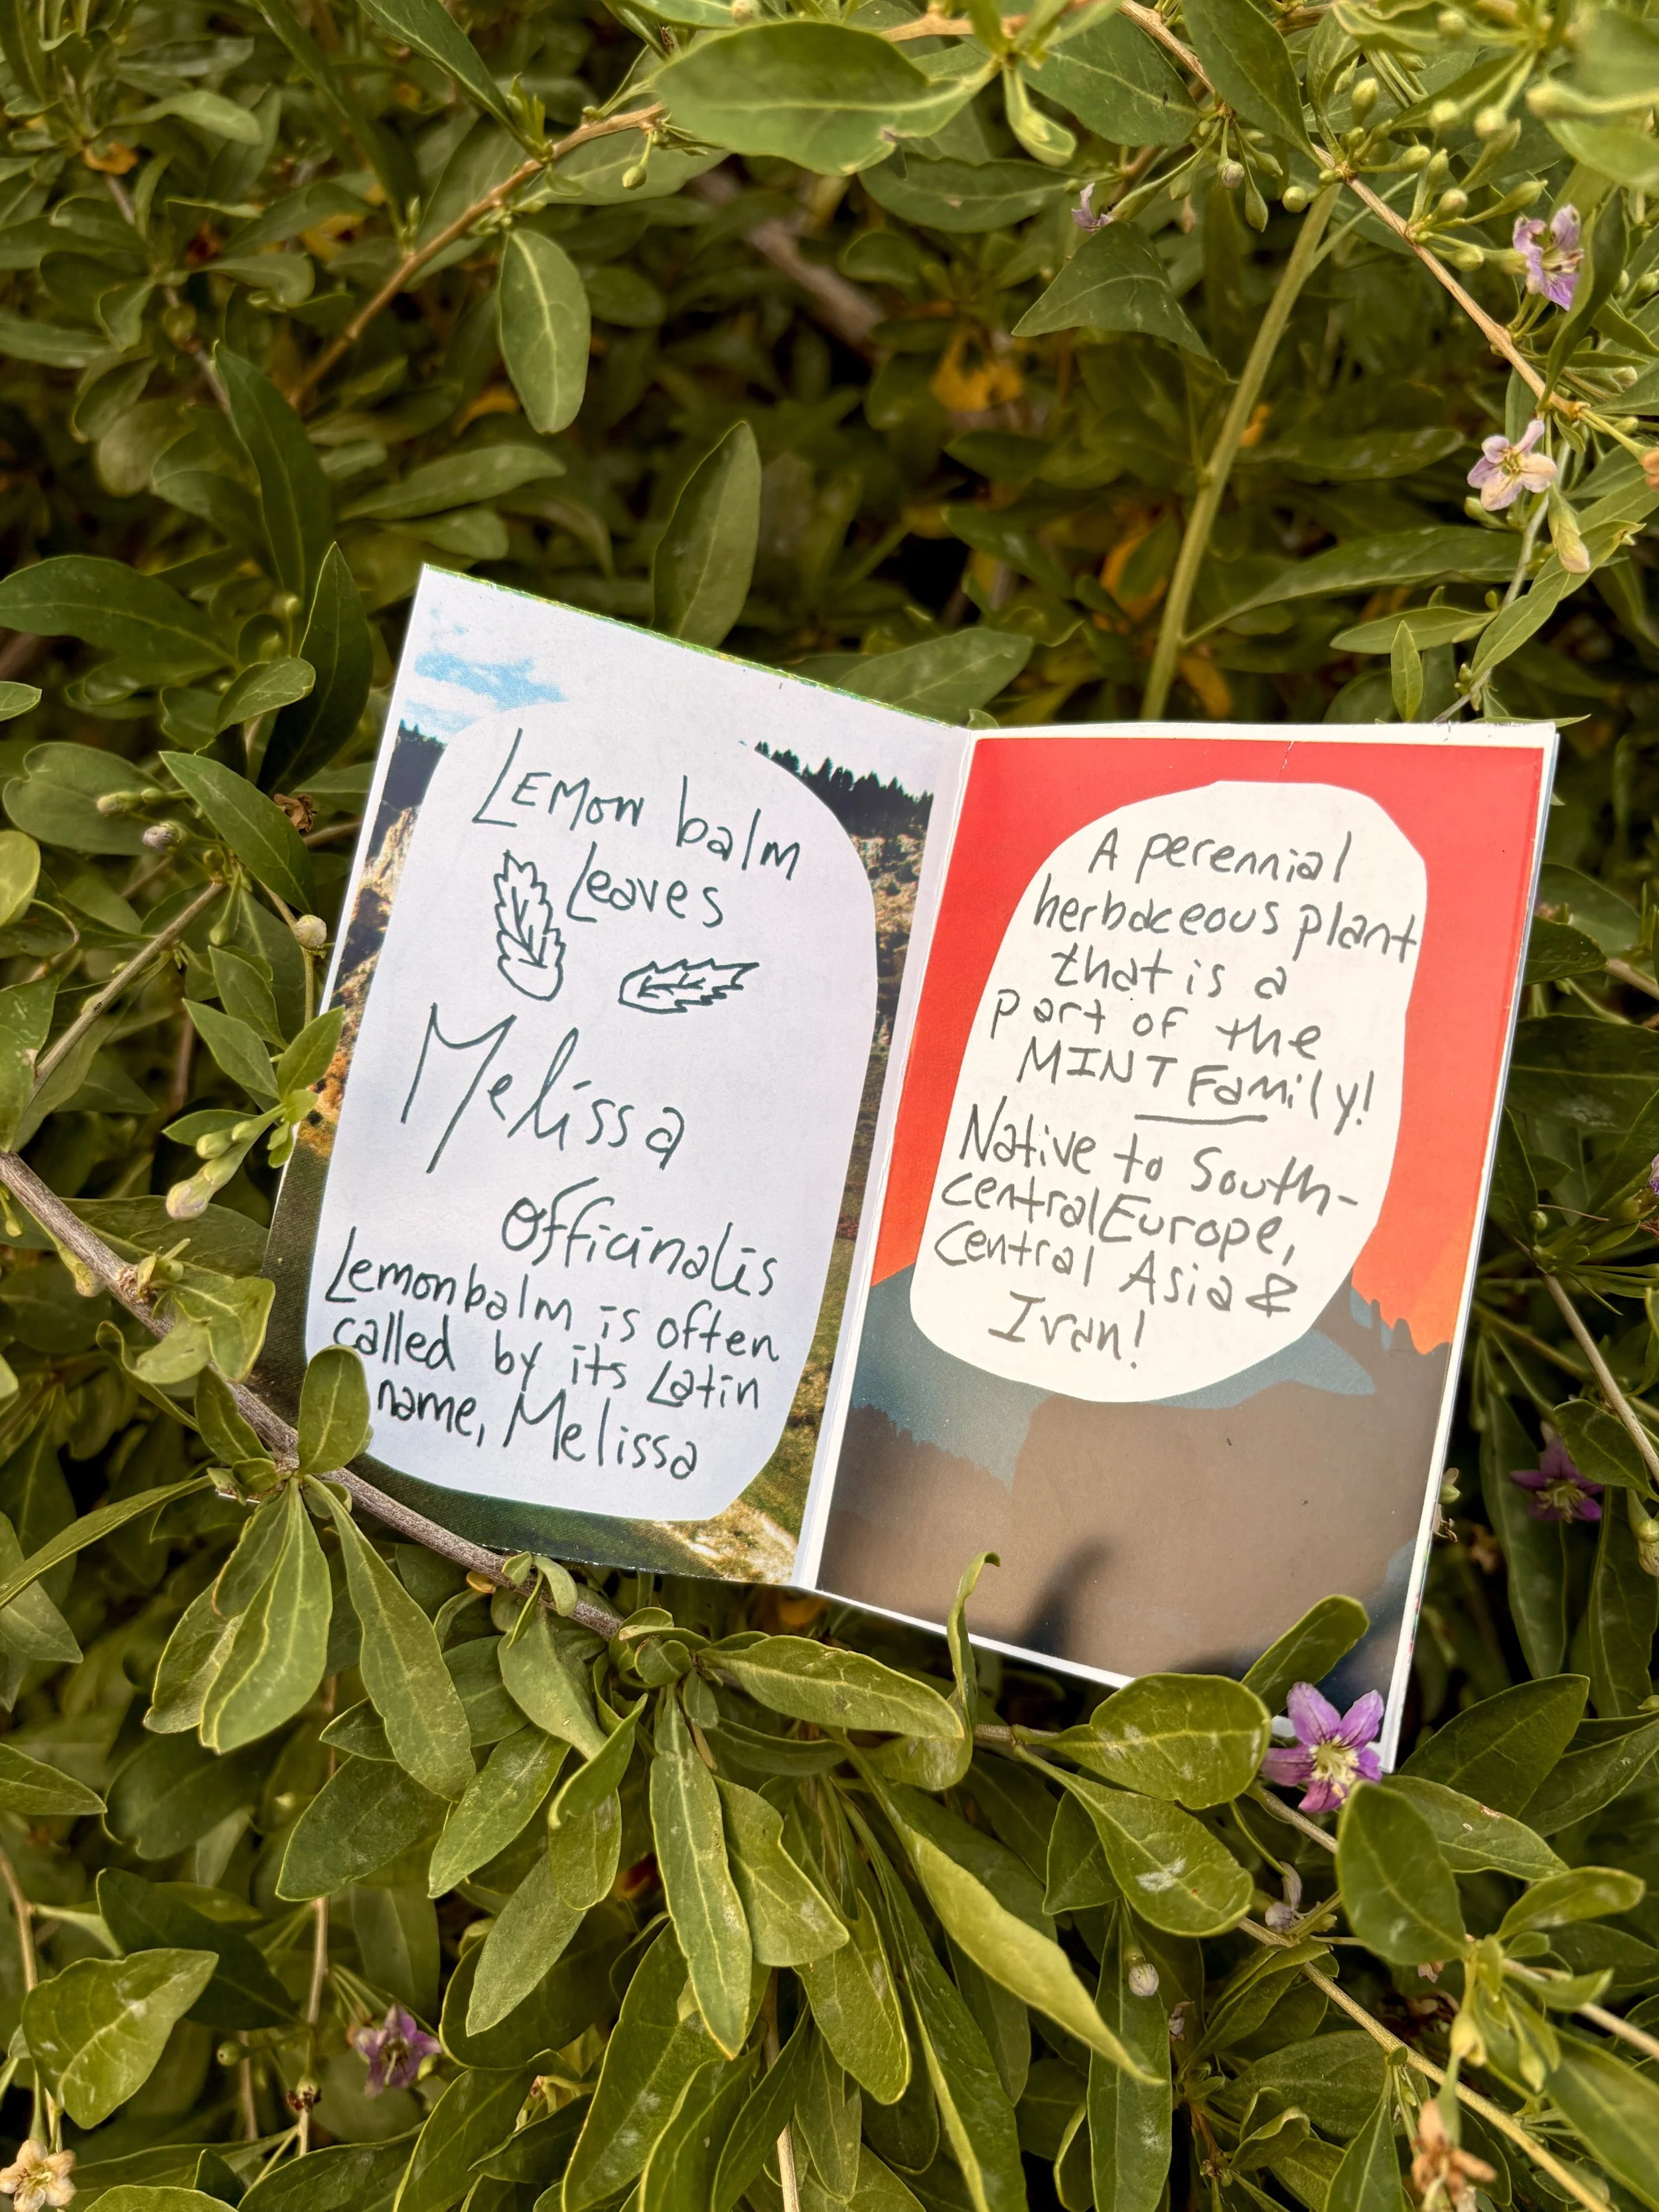 LEMON balm
Leaves
Melissa
officinalis
Lemonbalm is often
called by its Latin
name, Melissa
A perennial
herbaceous plant
that is a
part of the
MINT Family!
Native to South-
central Europe,
Central Asia &
Iran!